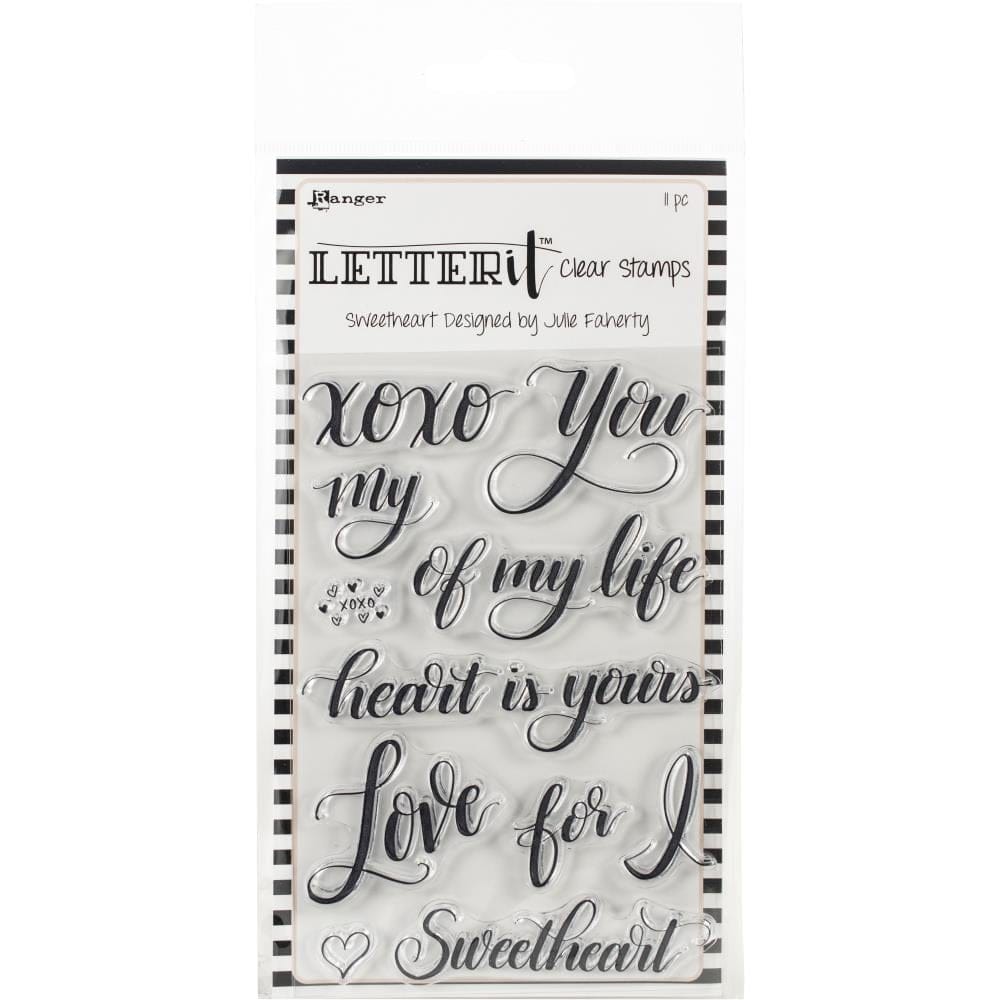 Ranger 11 pc
LETTERit™ Clear Stamps
Sweetheart Designed by Julie Faherty
xoxo You
my
of my life
xoxo
heart is yours
Love for I
Sweetheart